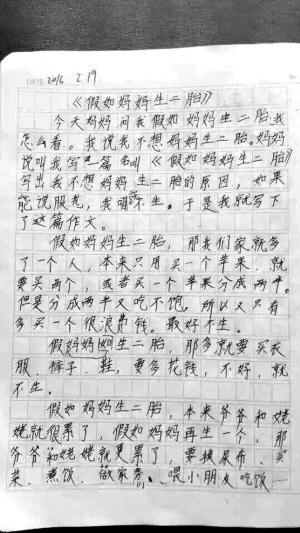 DATE 2016 2.19
《假如妈妈生二胎》
今天妈妈问我假如妈妈生二胎我
怎么看。我说我不想妈妈生二胎。妈妈
说叫我写一篇名叫《假如妈妈生二胎》
写出我不想妈妈生二胎的原因，如果
能说服我，我就不生。于是我就写下
了这篇作文。
假如妈妈生二胎，那我们家就多
了一个人，本来只用买一个苹果，就
要买两个，或者买一个苹果分成两半。
但是分成两半又吃不饱，所以又只有
多买一个很浪费钱。最好不生。
假妈妈如生二胎，那多就要买衣
服、裤子、鞋，要多花钱，不好，就
不生。
假如妈妈生二胎，本来爷爷和姥
姥就很累了，假如妈妈再生一个，那
爷爷和姥姥就更累了，要换尿布、买
菜、煮饭、做家务、喂小朋友吃饭……